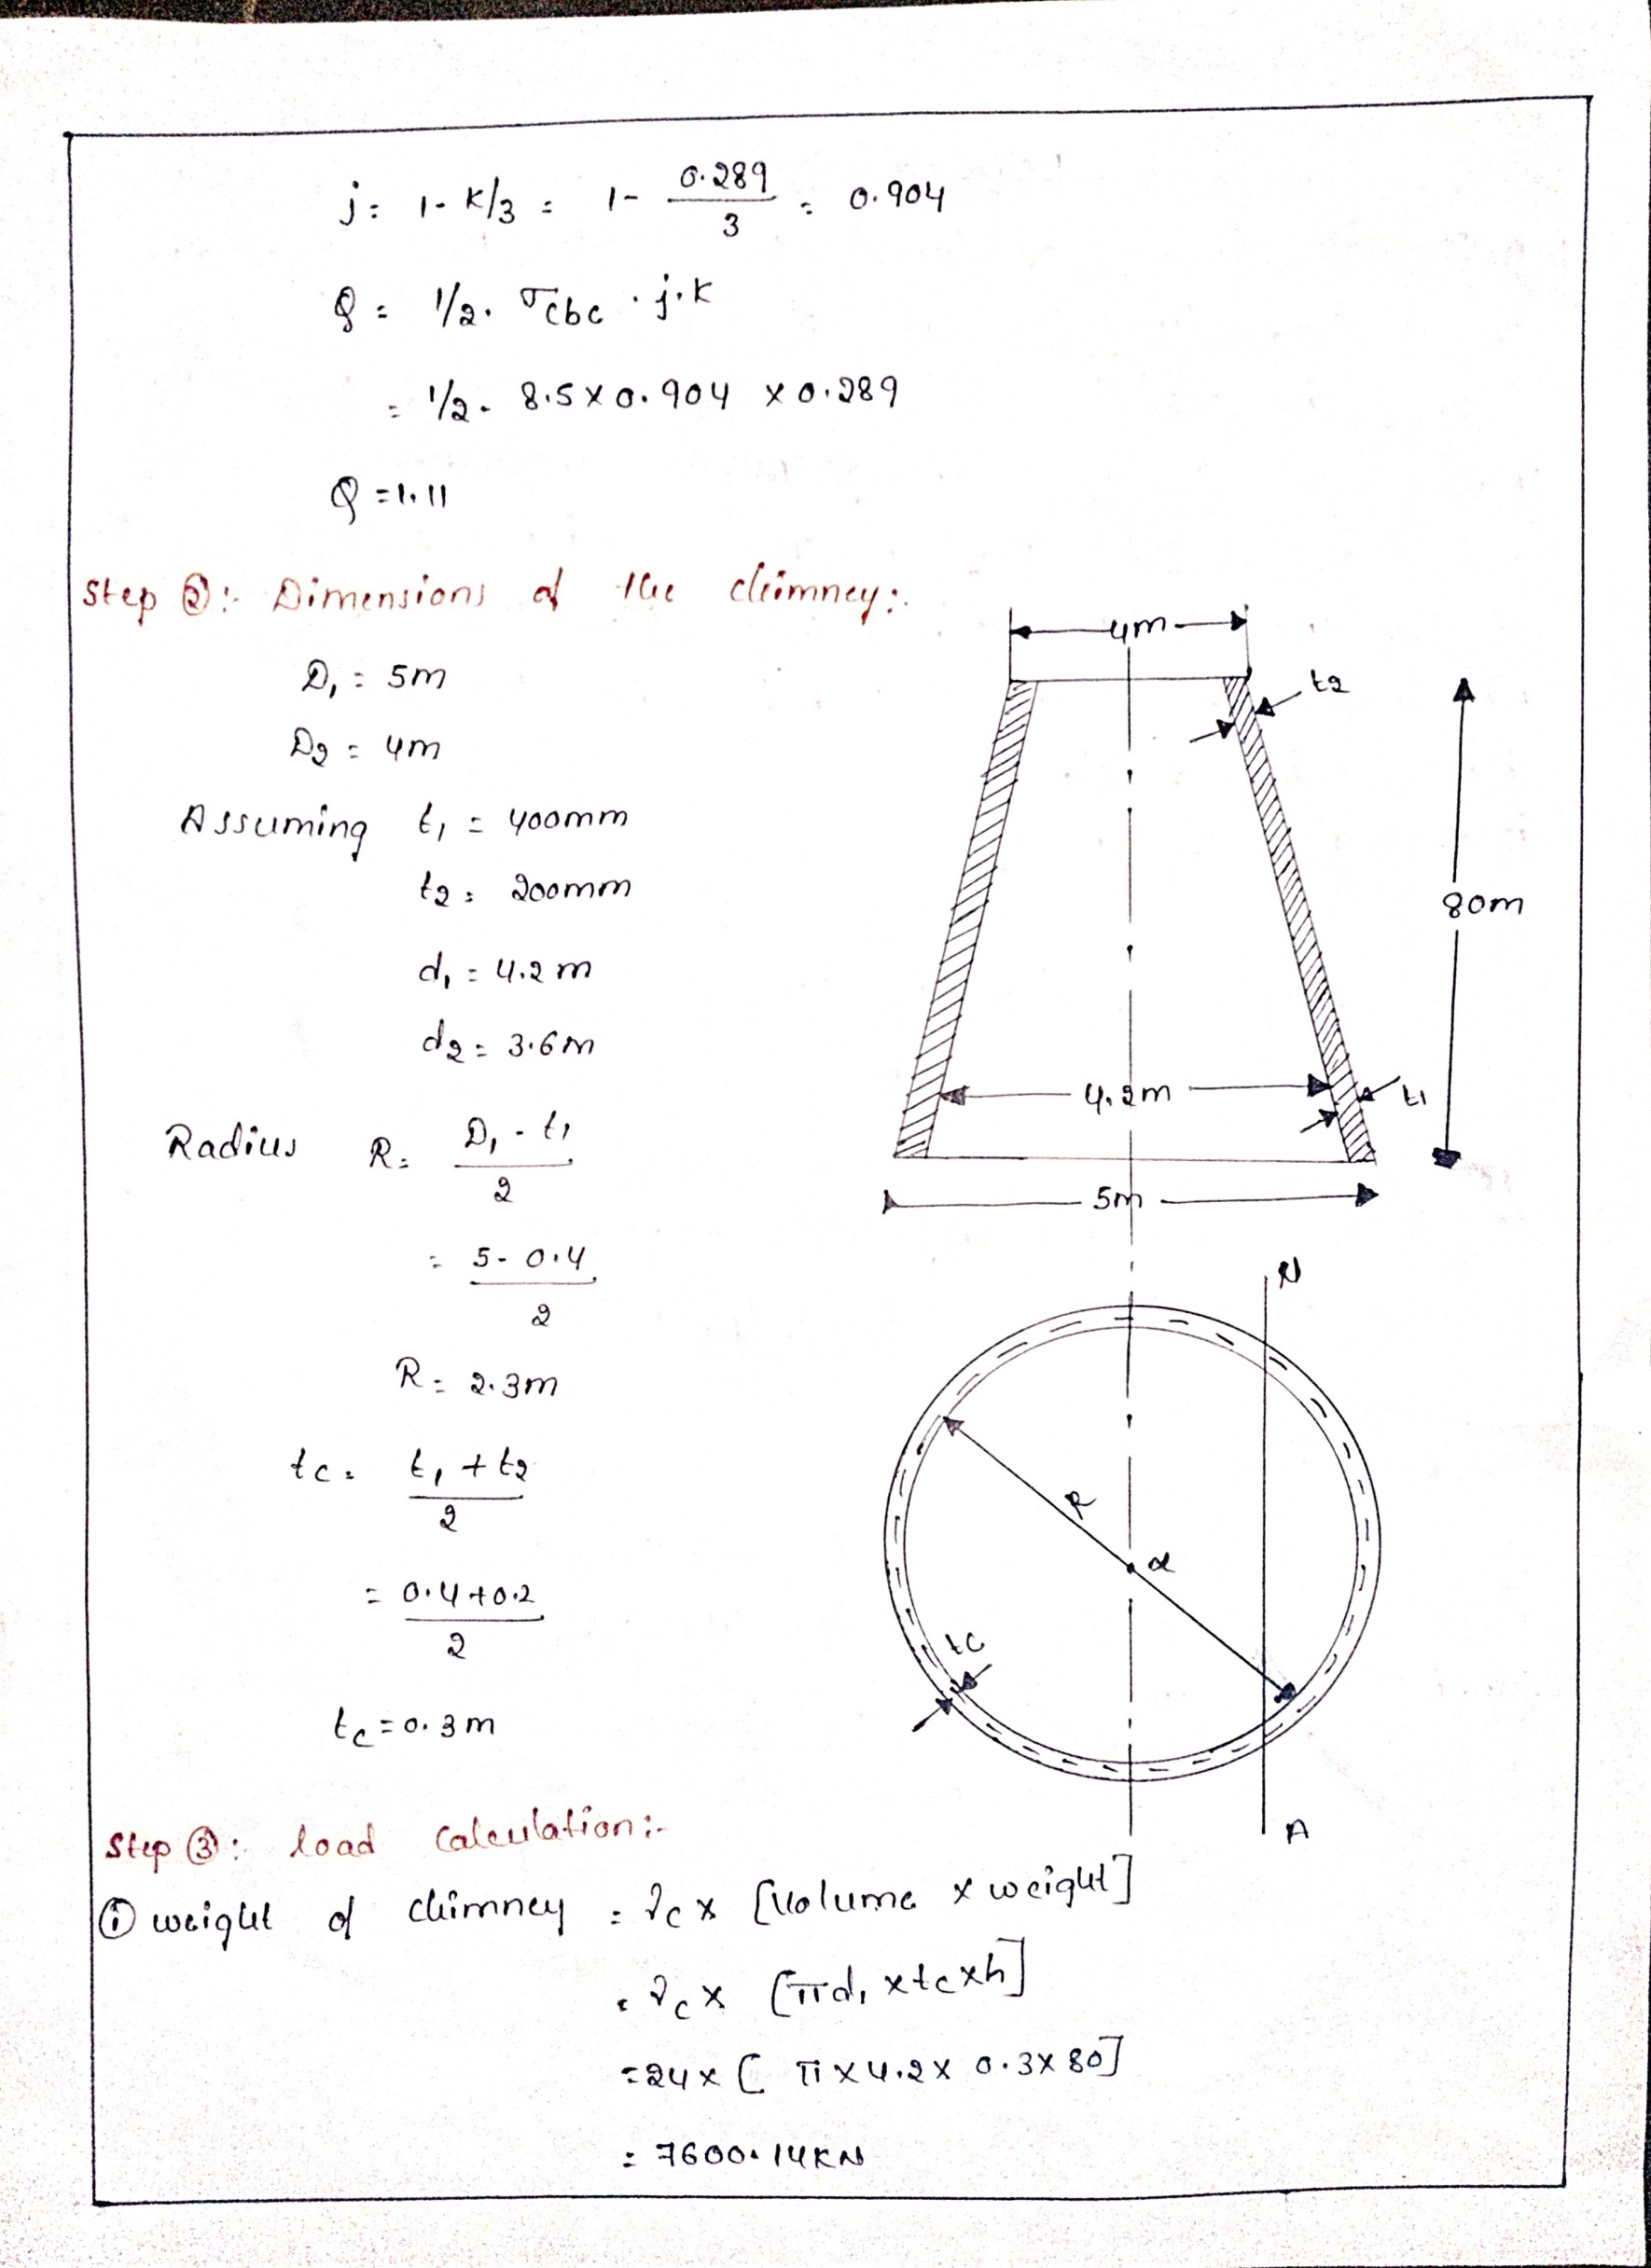 j = 1 - K/3 = 1 - 0.289/3 = 0.904
Q = 1/2 . σcbc . j.k
= 1/2 . 8.5 x 0.904 x 0.289
Q = 1.11
Step ②:- Dimensions of the chimney:-
D1 = 5m
D2 = 4m
Assuming t1 = 400mm
t2 = 200mm
d1 = 4.2m
d2 = 3.6m
Radius R = D1 - t1 / 2
= 5 - 0.4 / 2
R = 2.3m
tc = t1 + t2 / 2
= 0.4 + 0.2 / 2
tc = 0.3m
4m
t2
80m
4.2m
t1
5m
N
R
α
tc
A
Step ③:- load calculation:-
① weight of chimney = γc x [volume x weight]
= γc x [πd1 x tc x h]
= 24 x [π x 4.2 x 0.3 x 80]
= 7600.14KN